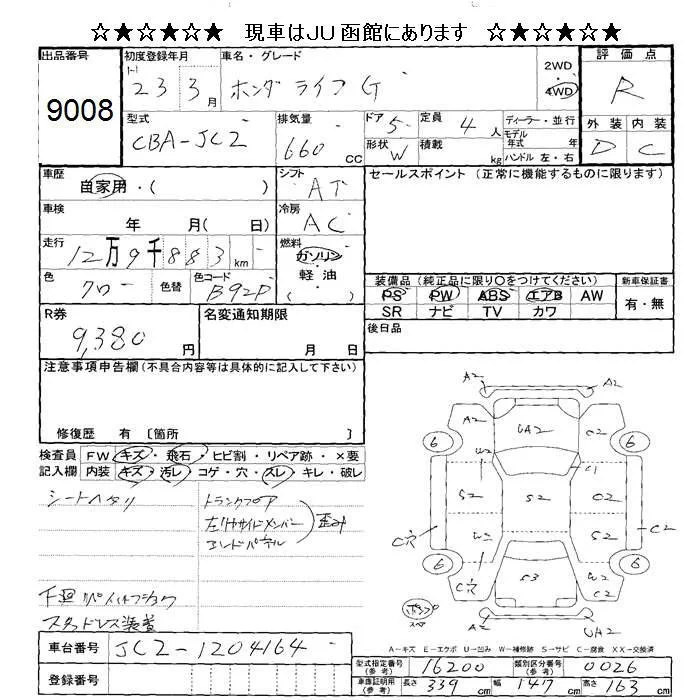 ☆★☆★☆★ 現車はJU函館にあります ☆★☆★☆★
出品番号 9008
初度登録年月 23 3月
車名・グレード ホンダ ライフ G
2WD 4WD
評価点 R
型式 CBA-JC2
排気量 660 CC
ドア 5 定員 4人
形状 W 積載 kg
ディーラー・並行
モデル年式 年式
ハンドル 左・右
外装 D 内装 C
車歴 自家用・( )
シフト AT
セールスポイント (正常に機能するものに限ります)
車検 年 月( 日)
冷房 AC
走行 12万9千883km
燃料 ガソリン・軽油 ( )
色 クロー 色替 色コード B92P
装備品 (純正品に限り○をつけてください) 新車保証書
PS PW ABS エアB AW 有・無
SR ナビ TV カワ
R券 9,380 円
名変通知期限 月 日
後日品
注意事項申告欄(不具合内容等は具体的に記入して下さい)
修復歴 有 〔箇所 〕
検査員 FW キズ・飛石・ヒビ割・リペア跡・×要
記入欄 内装 キズ・汚レ・コゲ・穴・スレ・キレ・破レ
シートヘタリ
トランクフロア
左リヤサイドメンバー 歪み
エンドパネル
下廻リペイントフショク
スタッドレス装着
A2 A2
A2 UA2 C2
6 6
W2 C1
S2 S2 O2
S2
C穴 W2 C2
6 6
C穴 S3 W2
C2
A2 UA2
A-キズ E-エクボ U-凹み W-補修跡 S-サビ C-腐食 XX-交換済
車台番号 JC2-1204164
登録番号
型式指定番号(参考) 16200 類別区分番号(参考) 0026
車庫証明用(参考) 長さ 339cm 幅 147cm 高さ 163cm